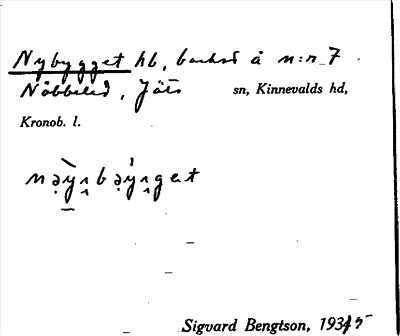 Nybygget hb, backst å n:r 7
Nöbbeled, Jäts sn, Kinnevalds hd,
Kronob. l.
Sigvard Bengtson, 1935